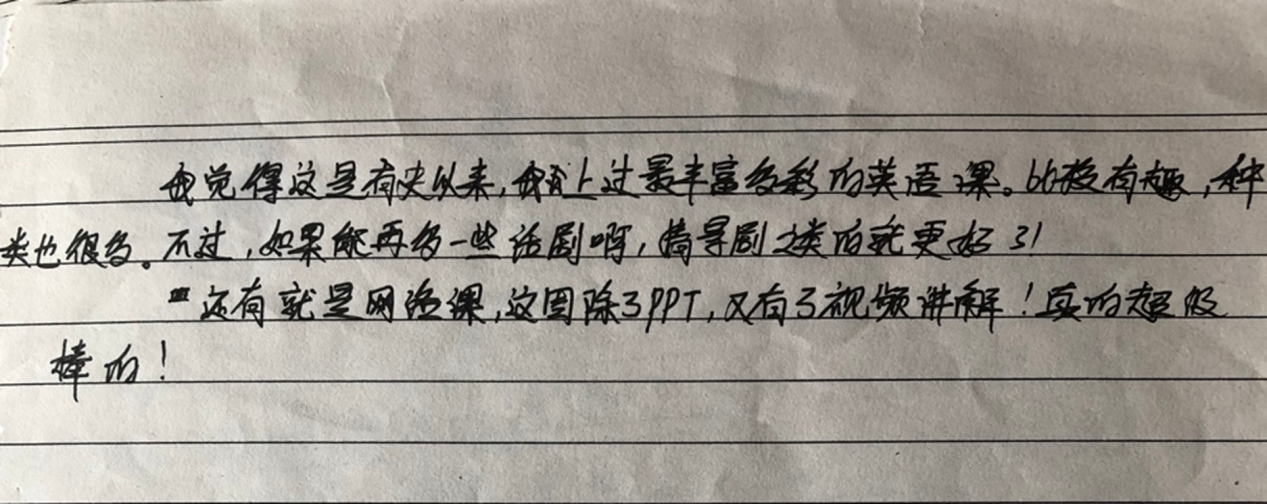 我觉得这是有史以来,我上过最丰富多彩的英语课。比较有趣,种
类也很多。不过,如果能再多一些话剧啊,情景剧之类的就更好了!
还有就是网络课,这周除了PPT,又有了视频讲解!真的超级
棒的!